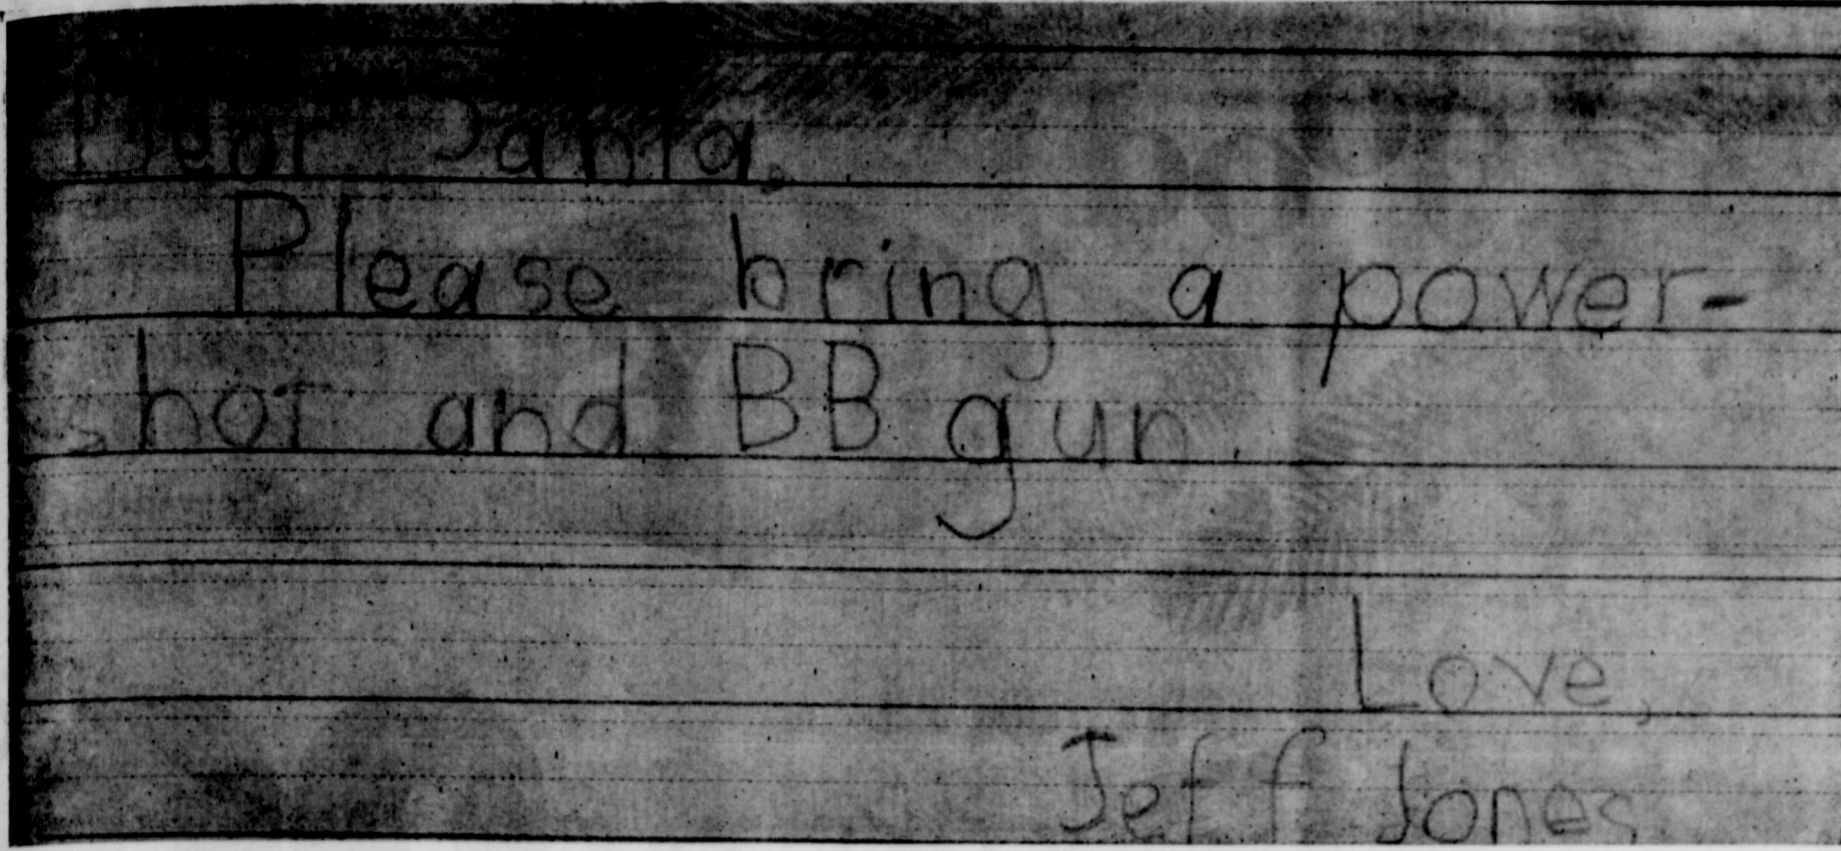 Dear Santa,
Please bring a power-
shot and BB gun.
Love,
Jeff Jones